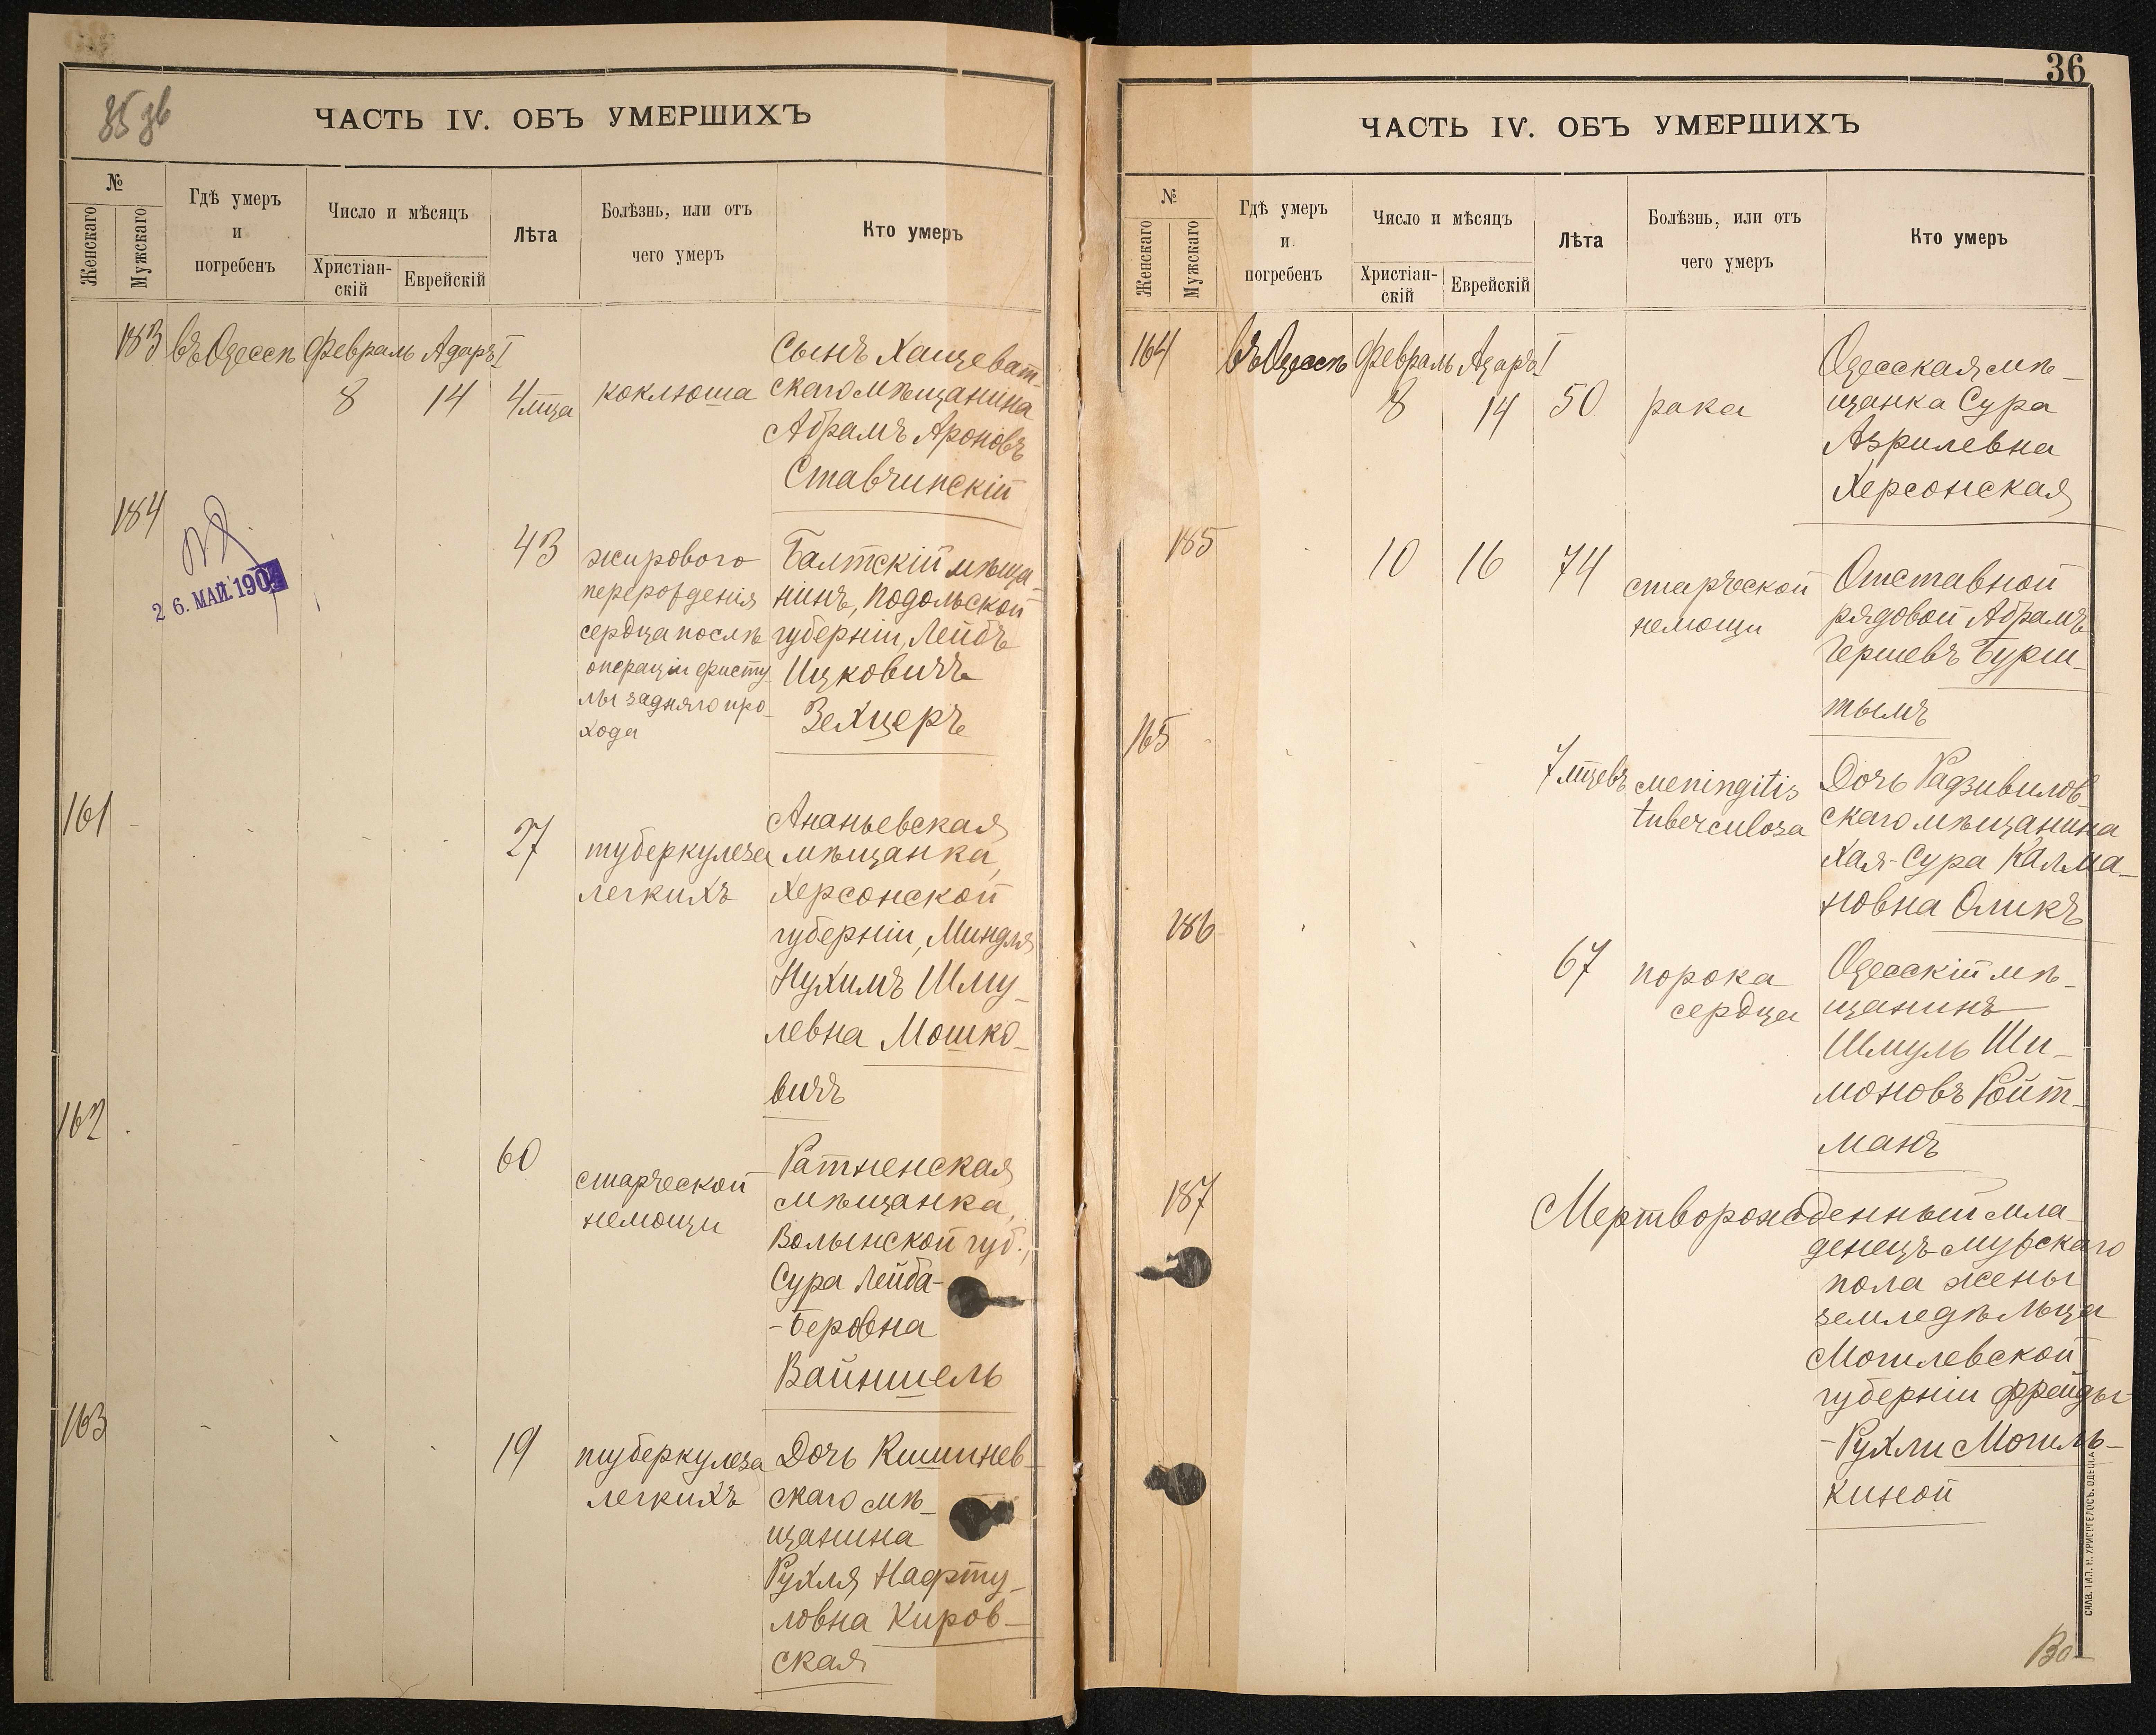 35 36
ЧАСТЬ IV. ОБЪ УМЕРШИХЪ
№
Женскаго
Мужскаго
Гдѣ умеръ
и
погребенъ
Число и мѣсяцъ
Христіан-
скій
Еврейскій
Лѣта
Болѣзнь, или отъ
чего умеръ
Кто умеръ
183 въ Одессѣ Февраль Адаръ I
8 14 4 мца коклюша
Сынъ Хащеват-
скаго мѣщанина
Абрамъ Ароновъ
Ставчинскій
184
26. МАЙ. 190
43
жирового
перерожденія
сердца послѣ
операціи фисту-
лы задняго про-
хода
Балтскій мѣща-
нинъ, Подольской
губерніи, Лейбъ
Ицковичъ
Зехцеръ
161
27
туберкулеза
легкихъ
Ананьевская
мѣщанка,
Херсонской
губерніи, Миндля
Нухимъ Шму-
левна Мошко-
вичъ
162
60
старческой
немощи
Ратненская
мѣщанка,
Волынской губ.,
Сура Лейба-
-Беровна
Вайншель
163
19
туберкулеза
легкихъ
Дочь Кишинев-
скаго мѣ-
щанина
Рухля Нафту-
ловна Киров-
ская
36
ЧАСТЬ IV. ОБЪ УМЕРШИХЪ
№
Женскаго
Мужскаго
Гдѣ умеръ
и
погребенъ
Число и мѣсяцъ
Христіан-
скій
Еврейскій
Лѣта
Болѣзнь, или отъ
чего умеръ
Кто умеръ
164 въ Одессѣ Февраль Адаръ I
8 14 50 рака
Одесская мѣ-
щанка Сура
Азрилевна
Херсонская
185
10 16 74
старческой
немощи
Отставной
рядовой Абрамъ
Гершевъ Бурш-
тымъ
165
7 мцевъ
meningitis
tuberculosa
Дочь Радзивилов-
скаго мѣщанина
Хая-Сура Калма-
новна Оликъ
186
67
порока
сердца
Одесскій мѣ-
щанинъ
Шмуль Ши-
моновъ Ройт-
манъ
187
Мертворожденный мла-
денецъ мужскаго
пола жены
земледѣльца
Могилевской
губерніи Фрейды-
-Рухли Могиль-
киной
СЛАВ. ТИП. Н. ХРИСОГЕЛОСЪ. ОДЕССА